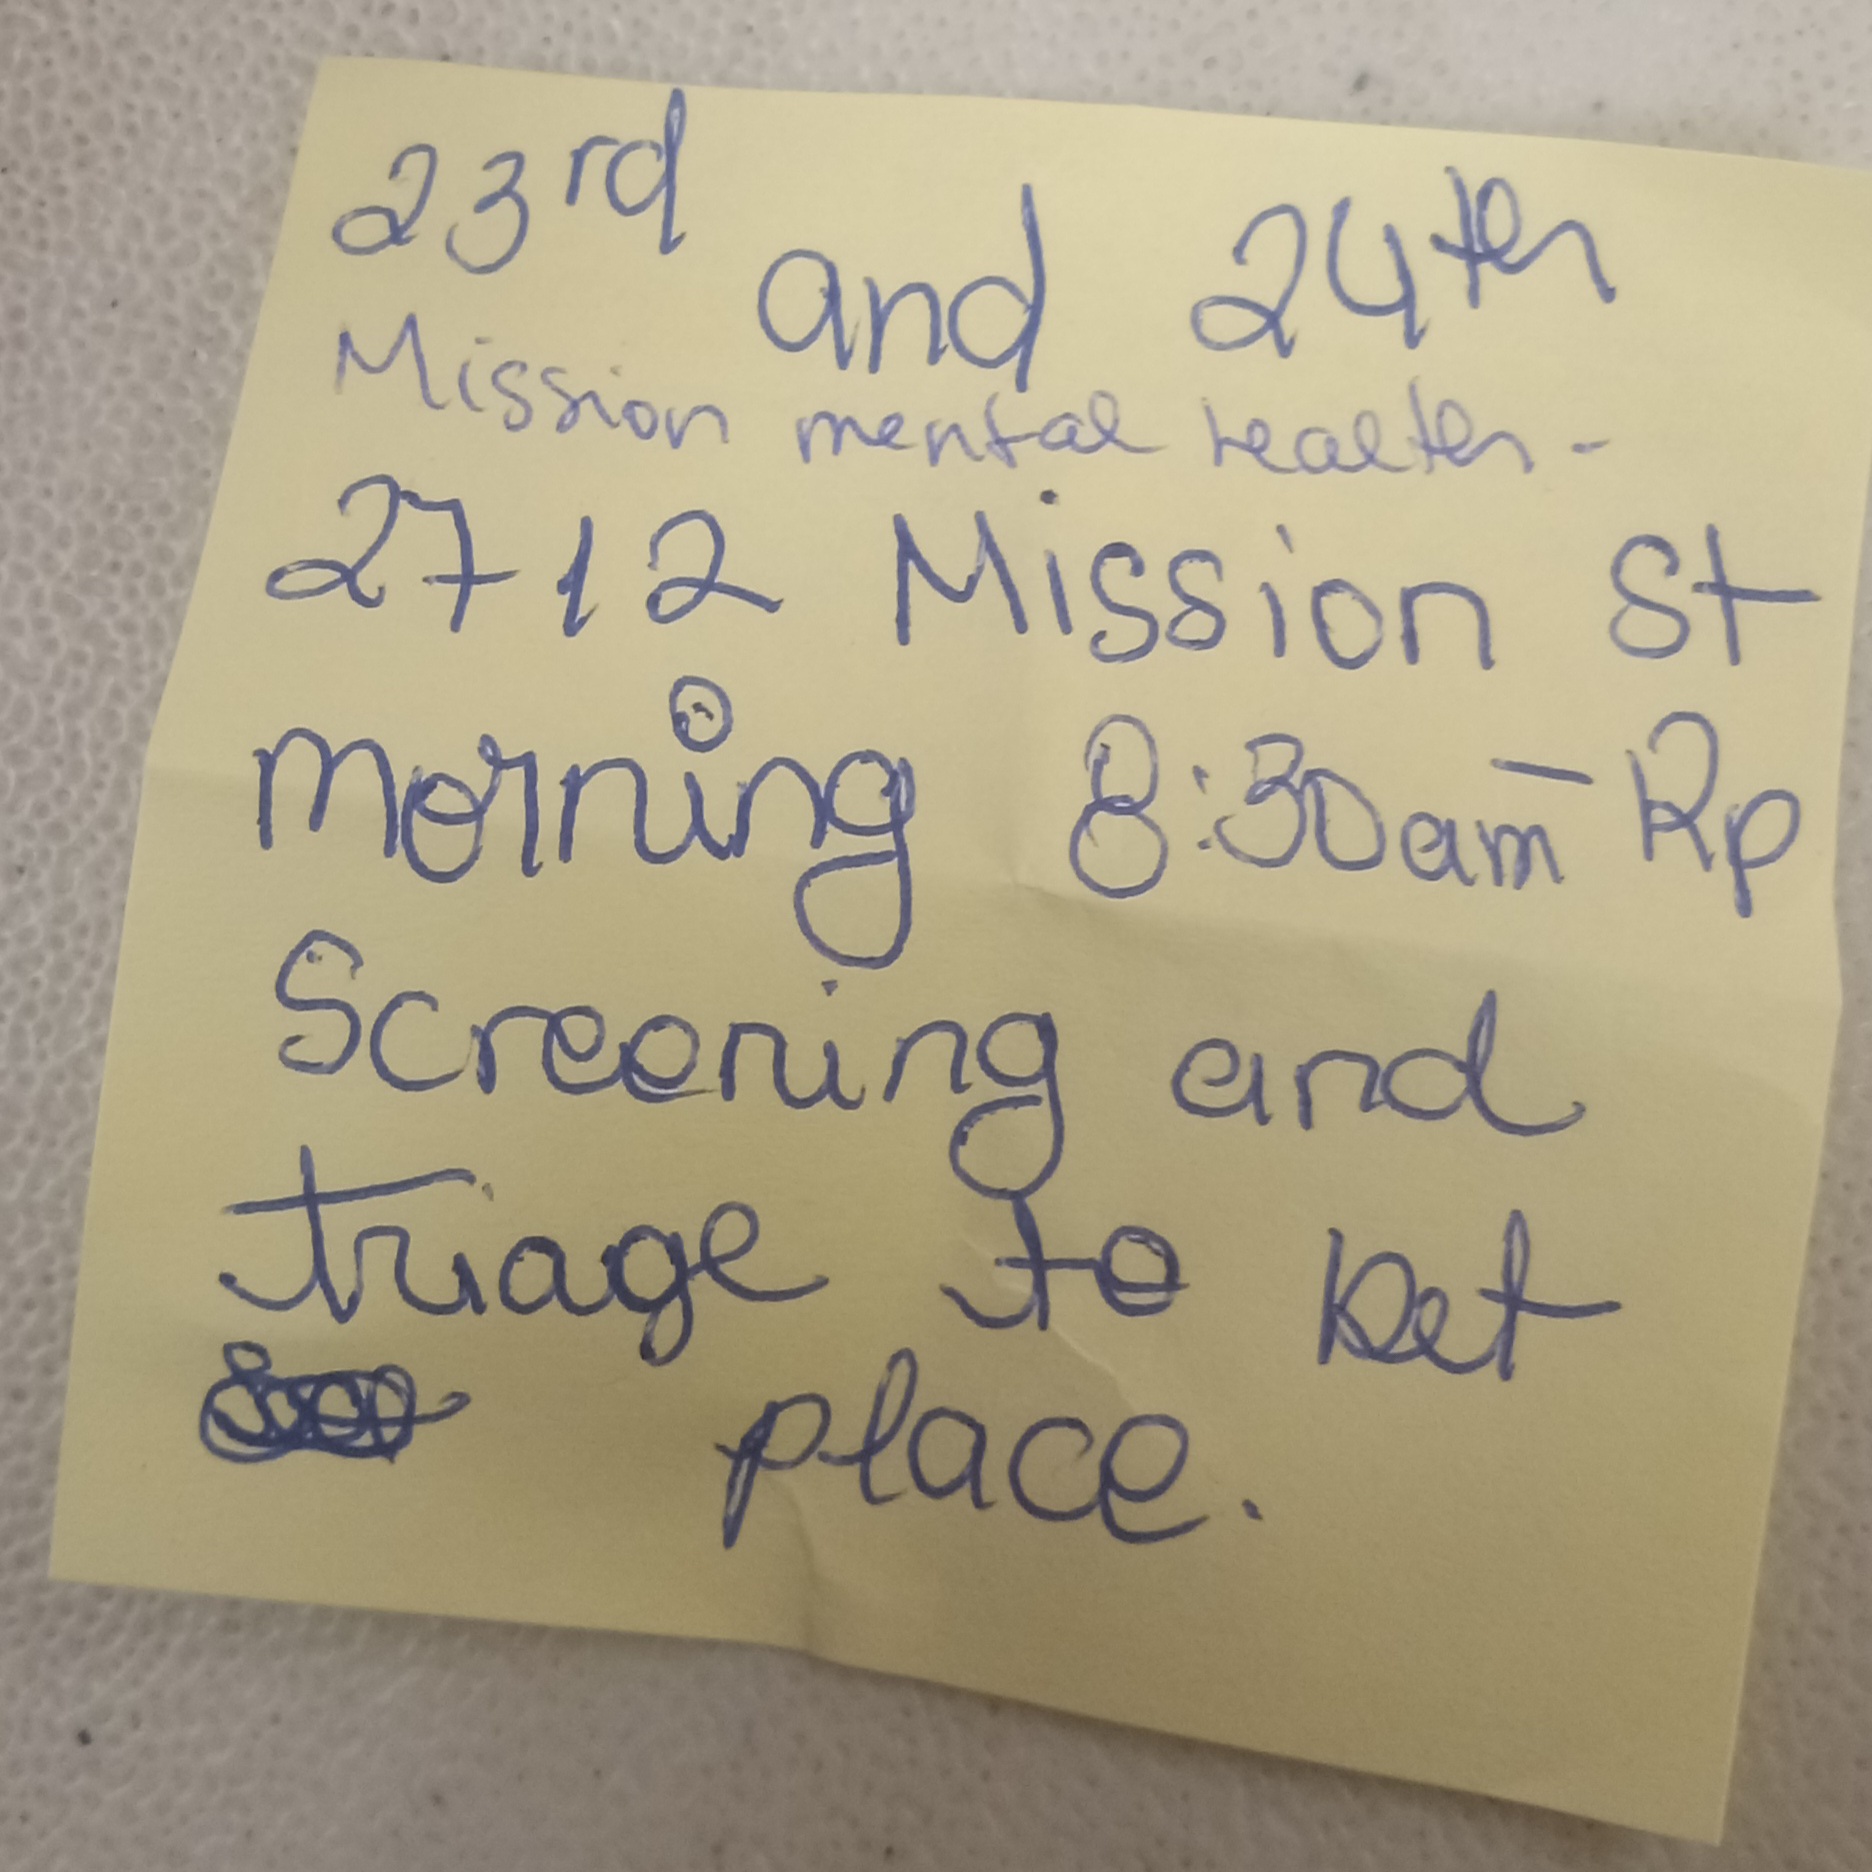 23rd and 24th
Mission mental health -
2712 Mission St
morning 8:30am -
Screening and
triage to
place.